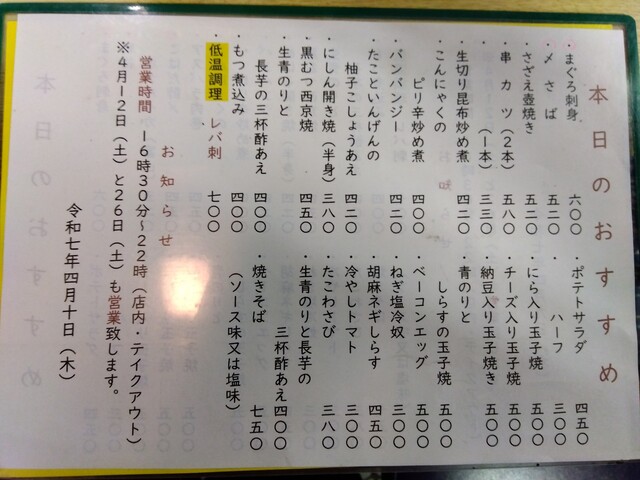 本日のおすすめ
・まぐろ刺身 六〇〇
・〆さば 五二〇
・さざえ壺焼き 五二〇
・串カツ(2本) 五八〇
(1本) 三三〇
・生切り昆布炒め煮 四二〇
・こんにゃくの
ピリ辛炒め煮 四〇〇
・バンバンジー 四二〇
・たこといんげんの
柚子こしょうあえ 四二〇
・にしん開き焼(半身) 三八〇
・黒むつ西京焼 四五〇
・生青のりと
長芋の三杯酢あえ 四〇〇
・もつ煮込み 四〇〇
・低温調理 レバ刺 七〇〇
・ポテトサラダ 四五〇
・ハーフ 三〇〇
・にら入り玉子焼 五〇〇
・チーズ入り玉子焼 五〇〇
・納豆入り玉子焼き 五〇〇
・青のりと
しらすの玉子焼 五〇〇
・ベーコンエッグ 五〇〇
・ねぎ塩冷奴 三〇〇
・胡麻ネギしらす 四五〇
・冷やしトマト 三〇〇
・たこわさび 三八〇
・生青のりと長芋の
三杯酢あえ 四〇〇
・焼きそば 七五〇
(ソース味又は塩味)
お知らせ
営業時間 16時30分〜22時(店内・テイクアウト)
※4月12日(土)と26日(土)も営業致します。
令和七年四月十日(木)